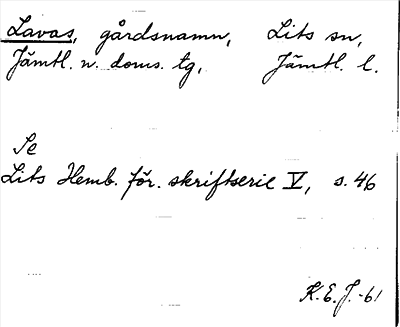 Lavas, gårdsnamn, Lits sn,
Jämtl. n. doms. tg, Jämtl. l.
Se
Lits Hemb. för. skriftserie V, s. 46
K. E. J. -61